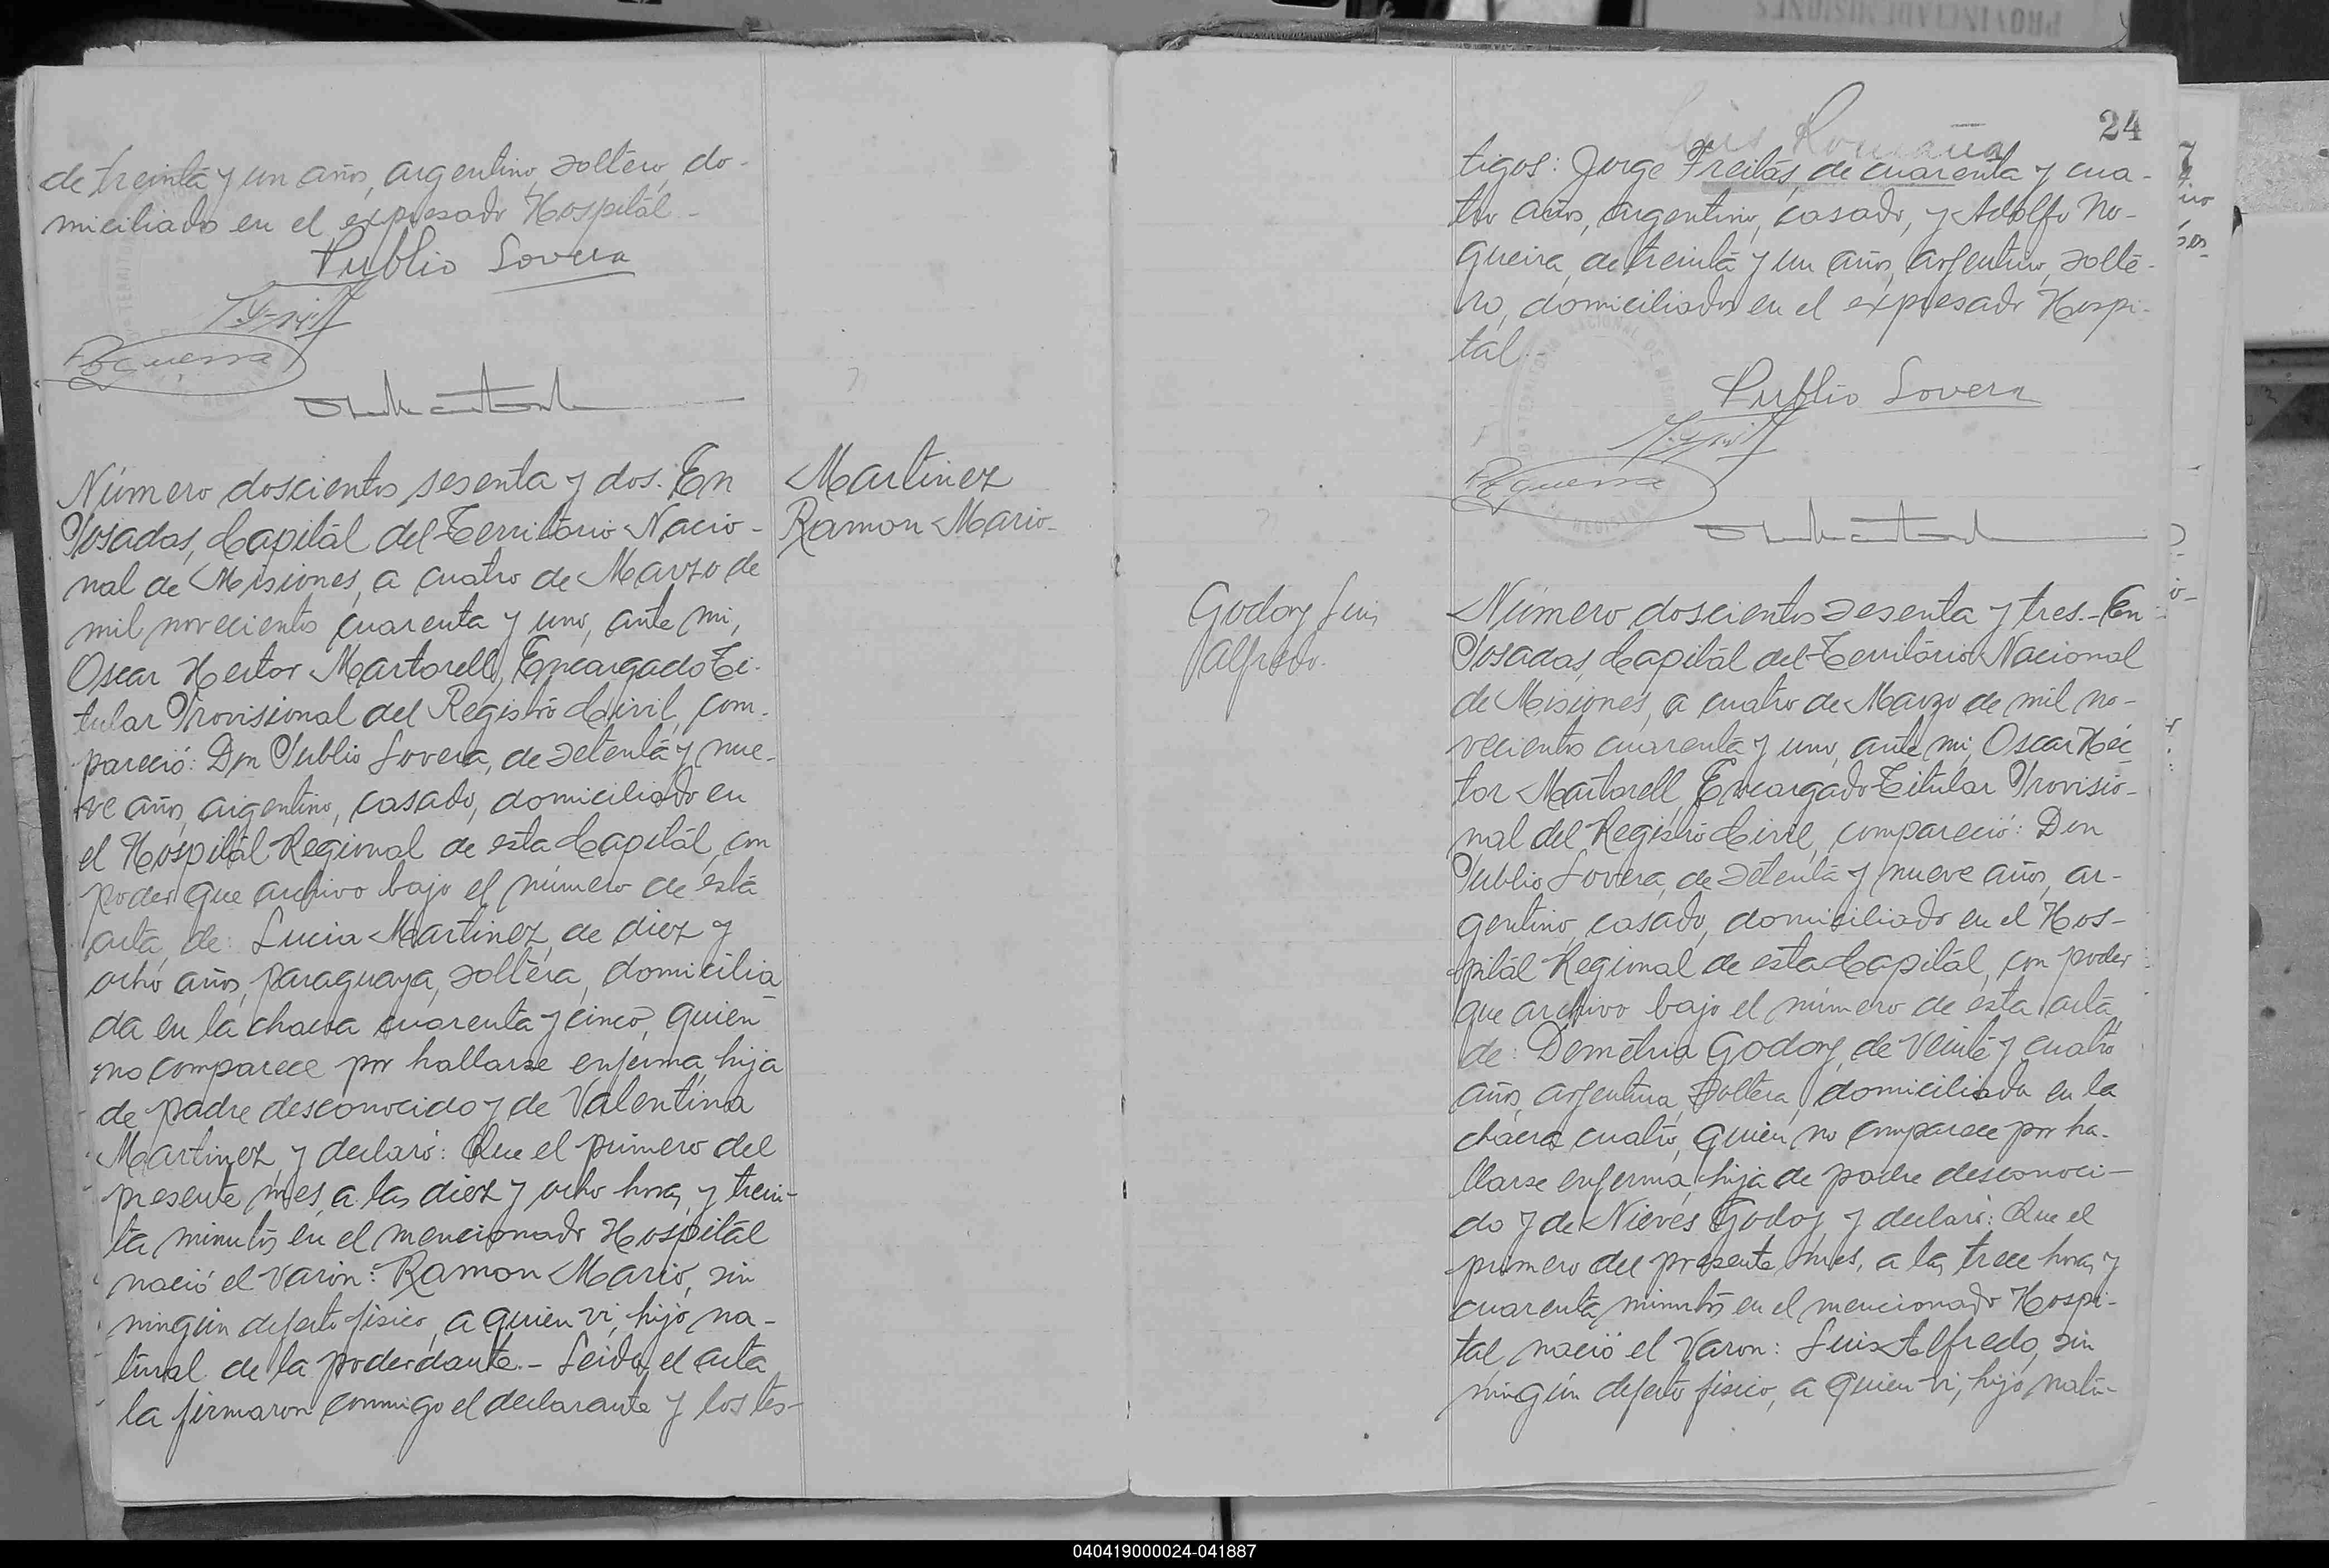 de treinta y un años, argentino, soltero, do-
miciliados en el expresado Hospitál-
Publio Lovera
Número doscientos sesenta y dos. En
Posadas, Capitál del Territorio Nacio-
nal de Misiones, a cuatro de Marzo de
mil novecientos cuarenta y uno, ante mi,
Oscar Hector Martorell, Encargado Ti-
tular Provisional del Registro Civil, com-
pareció: Don Publio Lovera, de setenta y nue-
ve años, argentino, casado, domiciliado en
el Hospitál Regional de esta Capitál, con
poder que archivo bajo el número de ésta
acta, de: Lucia Martinez, de diez y
ocho años, paraguaya, soltera, domicilia
da en la chacra cuarenta y cinco, quien
no comparece por hallarse enferma, hija
de padre desconocido y de Valentina
Martinez, y declaró: Que el primero del
presente mes, a las diez y ocho horas y trein-
ta minutos en el mencionado Hospitál
nació el varón: Ramon Mario, sin
ningún defecto fisico, a quien vi, hijo na-
tural de la poderdante.- Leida el acta
la firmaron conmigo el declarante y los tes-
Martinez
Ramon Mario-
24
tigos: Jorge Freitás, de cuarenta y cua-
tro años, argentino, casado, y Adolfo No-
gueira, de treinta y un años, argentino, solte-
ro, domiciliados en el expresado Hospi-
tál.-
Publio Lovera
Godoy Luis
Alfredo.
Número doscientos sesenta y tres.- En
Posadas, Capitál del Territorio Nacional
de Misiones, a cuatro de Marzo de mil no-
vecientos cuarenta y uno, ante mi, Oscar Héc
tor Martorell, Encargado Titular Provisio-
nal del Registro Civil, compareció: Don
Publio Lovera, de setenta y nueve años, ar-
gentino, casado, domiciliado en el Hos-
pitál Regional de esta Capitál, con poder
que archivo bajo el número de ésta acta,
de: Demetria Godoy, de veinte y cuatro
años, argentina, soltera, domiciliada en la
chacra cuatro, quien no comparece por ha-
llarse enferma, hija de padre desconoci-
do y de Nieves Godoy, y declaró: Que el
primero del presente mes, a las trece horas y
cuarenta minutos en el mencionado Hospi-
tal, nació el Varon: Luis Alfredo, sin
ningún defecto fisico, a quien vi, hijo natu-
040419000024-041887